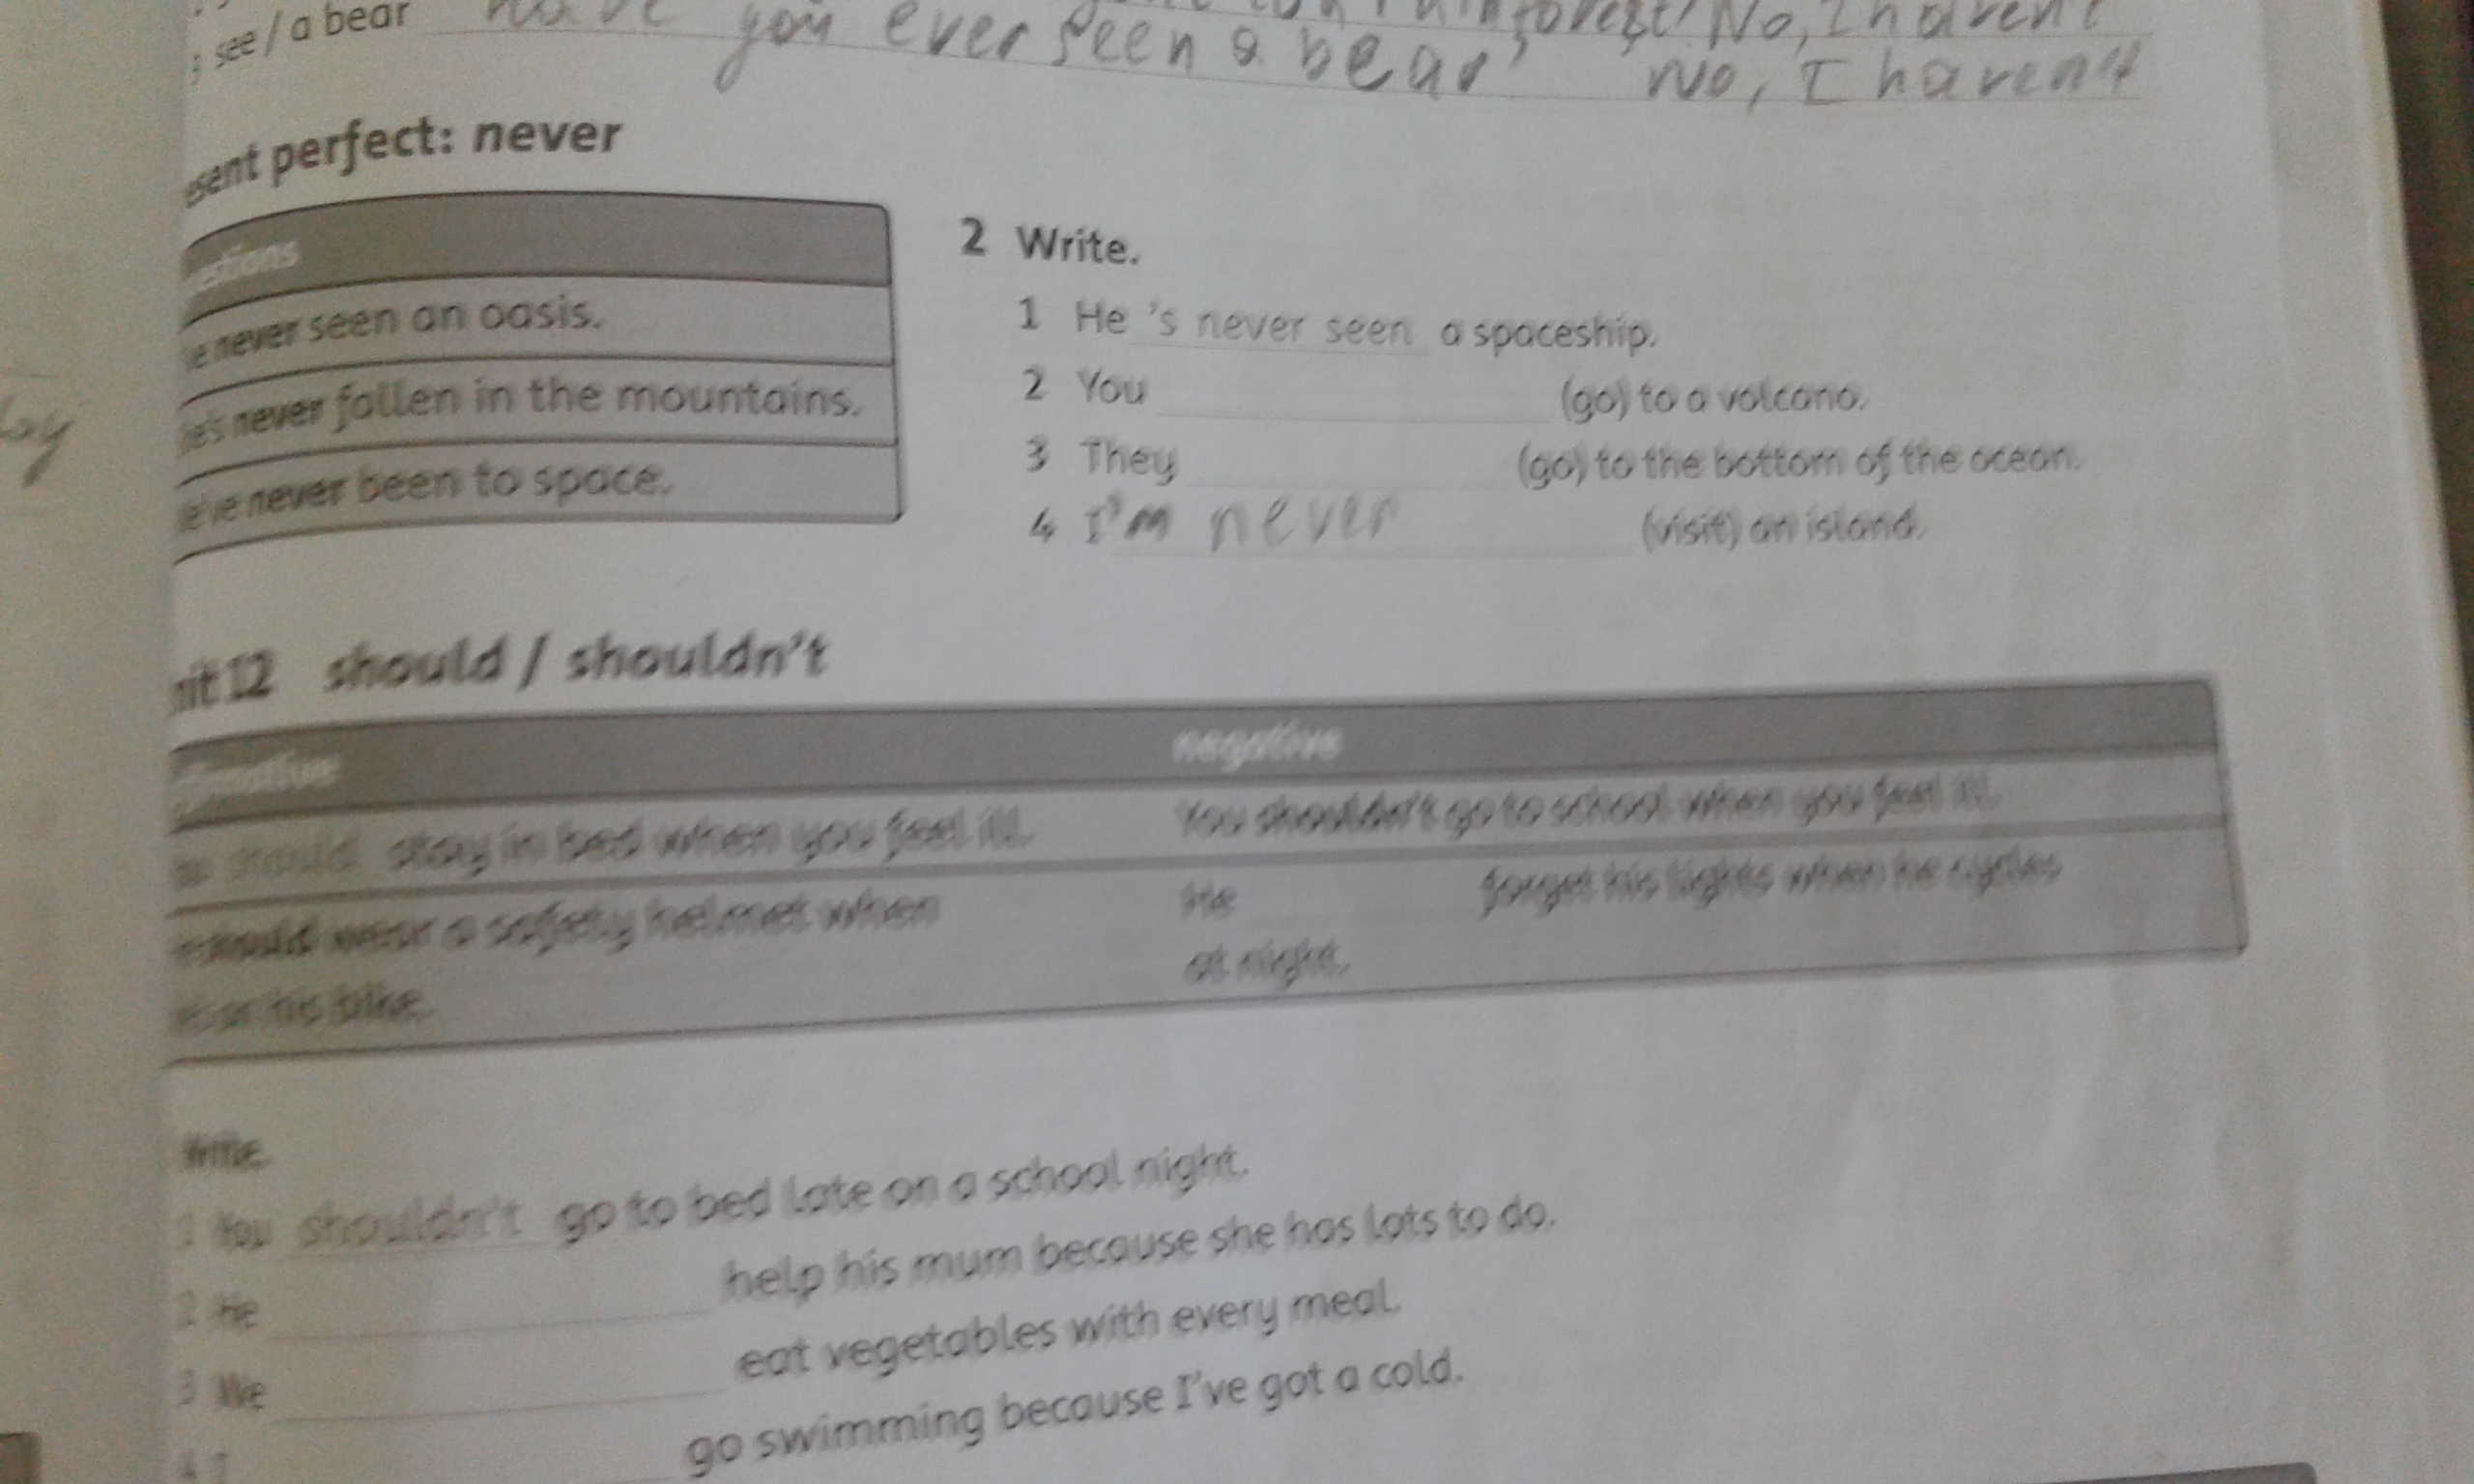 see / a bear have you ever seen a bear? No, I haven't
rainforest? No, I haven't
esent perfect: never
estions
've never seen an oasis.
he's never fallen in the mountains.
e've never been to space.
2 Write.
1 He 's never seen a spaceship.
2 You (go) to a volcano.
3 They (go) to the bottom of the ocean.
4 I'm never (visit) an island.
nit 12 should / shouldn't
firmative negative
should stay in bed when you feel ill. You shouldn't go to school when you feel ill.
should wear a safety helmet when He forget his lights when he cycles
his bike. at night.
Write.
1 You shouldn't go to bed late on a school night.
2 He help his mum because she has lots to do.
3 We eat vegetables with every meal.
4 I go swimming because I've got a cold.